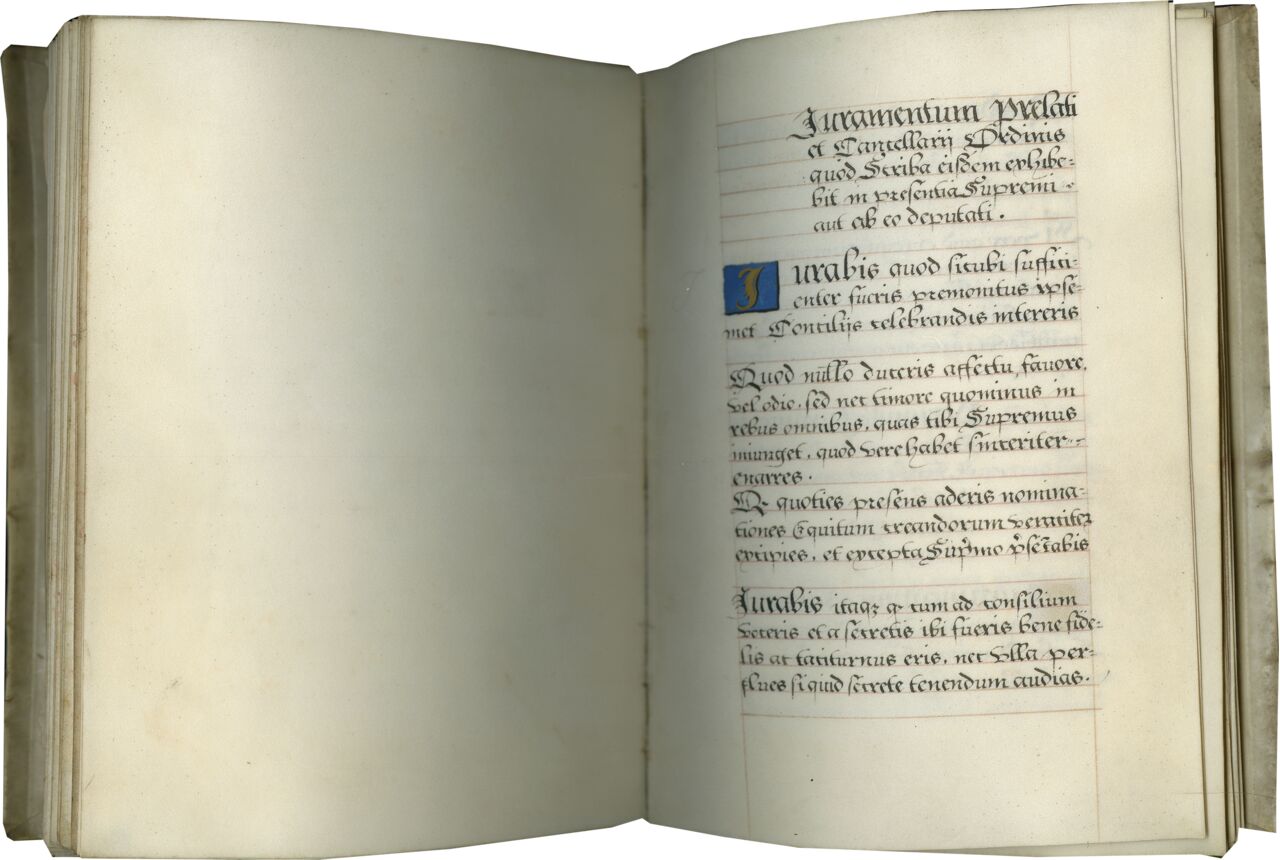 Iuramentum Prelati
et Cancellarij Ordinis
quod Scriba eisdem exhibe-
bit in presentia Supremi
aut ab eo deputati.
Iurabis quod sicubi suffici-
enter fueris premonitus ipse-
met Concilijs celebrandis intereris
Quod nullo duceris affectu, favore,
vel odio, sed nec timore quominus in
rebus omnibus, quas tibi Supremus
iniunget, quod vere habet sinceriter
enarres.
Et quoties presens aderis nomina-
tiones Equitum creandorum veraciter
excipies, et excepta Sup̃mo p̃sẽtabis
Iurabis itaqȝ q cum ad consilium
voceris et a secretis ibi fueris bene fide-
lis ac taciturnus eris, nec vlla per-
flues si quid secrete tenendum audias.